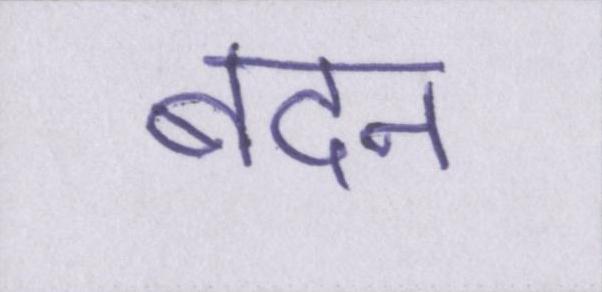 बदन